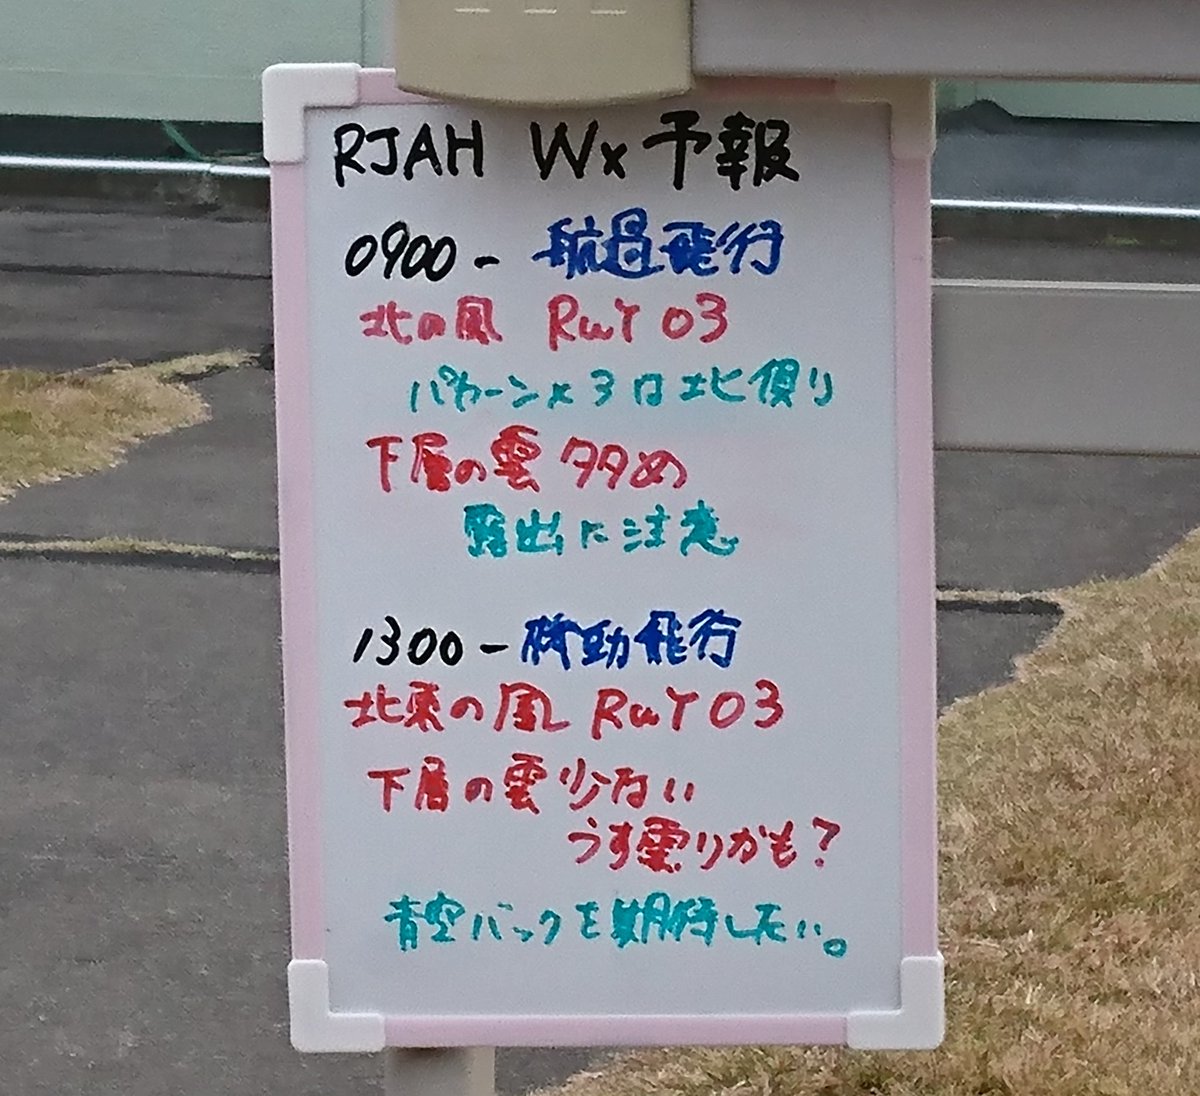 RJAH Wx 予報
0900 - 航過飛行
北の風 RwY 03
パターン×3は北側り
下層の雲 多め
露出に注意
1300 - 機動飛行
北東の風 RwY 03
下層の雲少ない
うす雲りかも?
青空バックを期待したい。